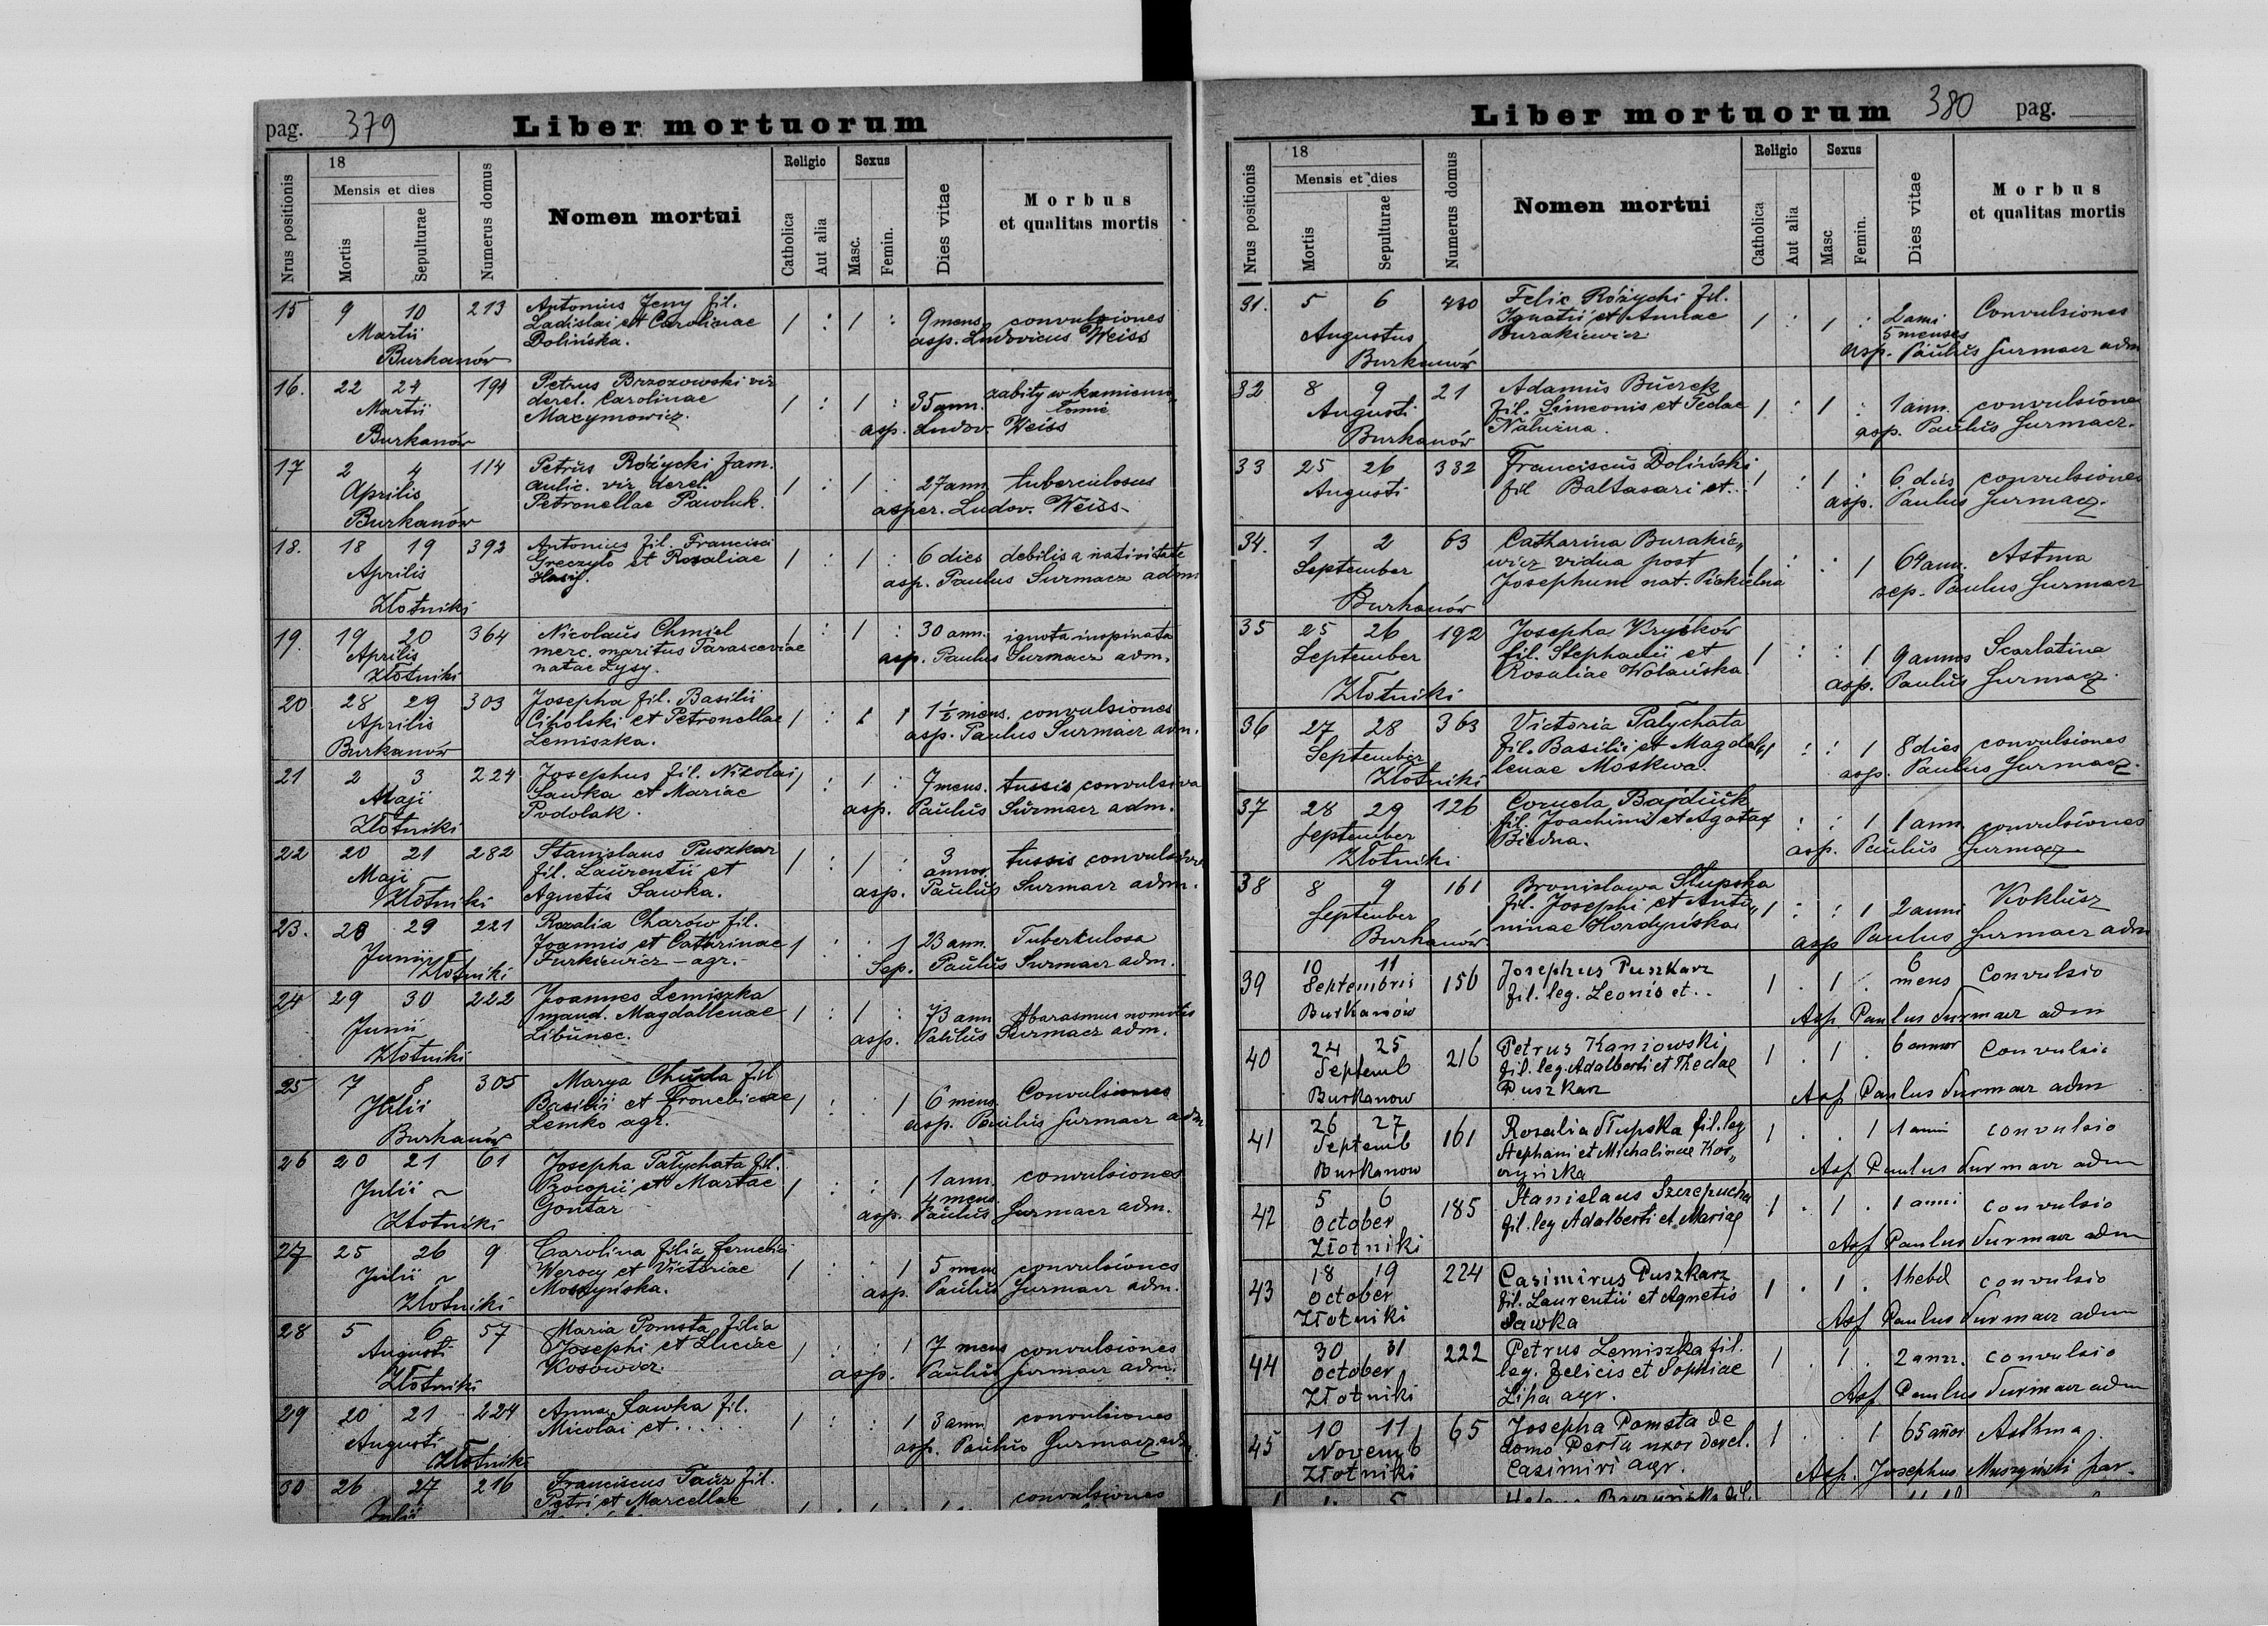 pag. 379
Liber mortuorum
Nrus positionis
18
Mensis et dies
Mortis
Sepulturae
Numerus domus
Nomen mortui
Religio
Catholica
Aut alia
Sexus
Masc.
Femin.
Dies vitae
Morbus
et qualitas mortis
15 9 10 213 Antonius Jeny fil. 1 : 1 : 9 mens. convulsiones
Martii Ladislai et Carolinae asp. Ludovicus Weiss
Burkanów Dolińska.
16. 22 24 194 Petrus Brzozowski vir 1 : 1 : 35 ann. zabity w kamienio„
Martii derel. Carolinae łomie
Burkanów Maxymowicz. asp. Ludov. Weiss
17 2 4 114 Petrus Różycki fam. 1 : 1 : 27 ann. tuberculosus
Aprilis aulic. vir derel. asper. Ludov. Weiss
Burkanów Petronellae Pawluk.
18. 18 19 392 Antonius fil. Francisci 1 : 1 : 6 dies debilis a nativitate
Aprilis Greczyło et Rosaliae asp. Paulus Surmacz adm.
Złotniki
19. 19 20 364 Nicolaus Chmiel 1 : 1 : 30 ann. ignota inopinata
Aprilis merc. maritus Parasceviae asp. Paulus Surmacz adm.
Złotniki natae Lysy.
20 28 29 303 Josepha fil. Basilii 1 : 1 1½ mens. convulsiones
Aprilis Cipolski et Petronellae asp. Paulus Surmacz adm.
Burkanów Lemiszka.
21 2 3 224 Josephus fil. Nikolai 1 : 1 : 7 mens. tussis convulsiva
Maji Sawka et Mariae asp. Paulus Surmacz adm.
Złotniki Podolak.
22 20 21 282 Stanislaus Puszkar 1 : 1 : 3 annos tussis convulsiva
Maji fil. Laurentii et asp. Paulus Surmacz adm.
Złotniki Agnetis Sawka.
23. 28 29 221 Rozalia Charów fil. 1 : . 1 23 ann. Tuberkulosa
Junii Joannis et Catharinae Sep. Paulus Surmacz adm.
Złotniki Furkiewicz – agr.
24 29 30 222 Joannes Lemiszka 1 : 1 : 73 ann.
Junii Magdallenae asp. Paulus Surmacz adm.
Złotniki Libunec.
25 7 8 305 Marya Chuda fil 1 : . 1 6 mens. Convulsiones
Julii Basilii et asp. Paulus Surmacz adm
Burkanów Lemko agr.
26 20 21 61 Josepha Pałychata fil. 1 : : 1 1 ann. convulsiones
Julii Procopii et Martae 4 mens.
Złotniki Gontar asp. Paulus Surmacz adm.
27 25 26 9 Carolina filia 1 : . 1 5 mens convulsiones
Julii Werocy et Victoriae asp. Paulus Surmacz adm.
Złotniki Moszyńska.
28 5 6 57 Maria Pomsta filia 1 : : 1 7 mens convulsiones
Augusti Josephi et Luciae asp. Paulus Surmacz adm.
Złotniki Kosowicz.
29 20 21 224 Anna Sawka fil. 1 : : 1 3 ann convulsiones
Augusti Nicolai et .... asp. Paulus Surmacz adm
Złotniki
30 26 27 216 Franciscus Taur fil. convulsiones
Julii Petri et Marcellae
Liber mortuorum 380 pag.
Nrus positionis
18
Mensis et dies
Mortis
Sepulturae
Numerus domus
Nomen mortui
Religio
Catholica
Aut alia
Sexus
Masc
Femin.
Dies vitae
Morbus
et qualitas mortis
31. 5 6 430 Felix Różycki fil. 1 : 1 : 2 anni Convulsiones
Augustus Ignatii et Annae 5 menses
Burkanów Burakiewicz asp. Paulus Surmacz adm
32 8 9 21 Adamus Bucrek 1 : 1 : 1 ann. convulsiones
Augusti fil. Simeonis et Teclae asp. Paulus Surmacz.
Burkanów Nahirna.
33 25 26 332 Franciscus Doliński 1 : 1 : 6 dies convulsiones
Augusti fil Baltasari et... asp. Paulus Surmacz.
34. 1 2 63 Catharina Burakie„ 1 : : 1 64 ann. Astma
September wicz vidua post sep. Paulus Surmacz
Burkanów Josephum nat. Piekielna
35 25 26 192 Josepha Kryśków 1 : : 1 9 annos Scarlatina
September fil. Stephanii et asp. Paulus Surmacz.
Złotniki Rosaliae Wolańska
36 27 28 363 Victoria Pałychata 1 : : 1 8 dies convulsiones
September fil. Basilii et Magda„ asp. Paulus Surmacz.
Złotniki lenae Moskwa.
37 28 29 126 Cornela Bajdiuk : : 1 1 ann. convulsiones
September fil. Joachimi et Agatae asp. Paulus Surmacz
Złotniki Biedna.
38 8 9 161 Bronislawa Słupska 1 : : 1 2 anni Koklusz
September fil. Josephi et Anto„ asp Paulus Surmacz adm
Burkanów ninae Hordyńska
39 10 11 156 Josephus Puszkarz 1 . 1 . 6 mens Convulsio
Septembris fil. leg. Leonis et .. Asp Paulus Surmacz adm
Burkanów
40 24 25 216 Petrus Kaniowski 1 . 1 . 6 annor Convulsio
Septemb fil. leg. Adalberti et Theclae
Burkanow Puszkarz Asp Paulus Surmacz adm
41 26 27 161 Rosalia Słupska fil. leg 1 . . 1 1 anni convulsio
Septemb Stephani et Michalinae Kor„
Burkanow czyńska Asp Paulus Surmacz adm
42 5 6 185 Stanislaus Szczepucha 1 . 1 . 1 anni convulsio
October fil. leg Adalberti et Mariae
Złotniki Asp Paulus Surmacz adm
43 18 19 224 Casimirus Puszkarz 1 . 1 . 1 hebd convulsio
October fil. Laurentii et Agnetis
Złotniki Sawka Asp Paulus Surmacz adm
44 30 31 222 Petrus Lemiszka fil. 1 . 1 . 2 ann. convulsio
October leg. Felicis et Sophiae
Złotniki Lipa agr. Asp Paulus Surmacz adm
45 10 11 65 Josepha Pomsta de 1 . . 1 65 añor Asthma.
Novemb domo Perła uxor derel.
Złotniki Casimiri agr. Asp. Josephus Muszyński par.